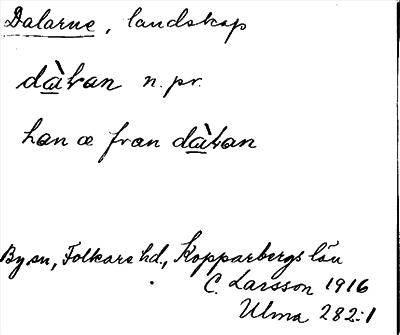 Dalarne, landskap
dàɫan n. pr.
han æ fran dàɫan
By sn, Folkare hd., Kopparbergs län
C. Larsson 1916
Ulma 282:1